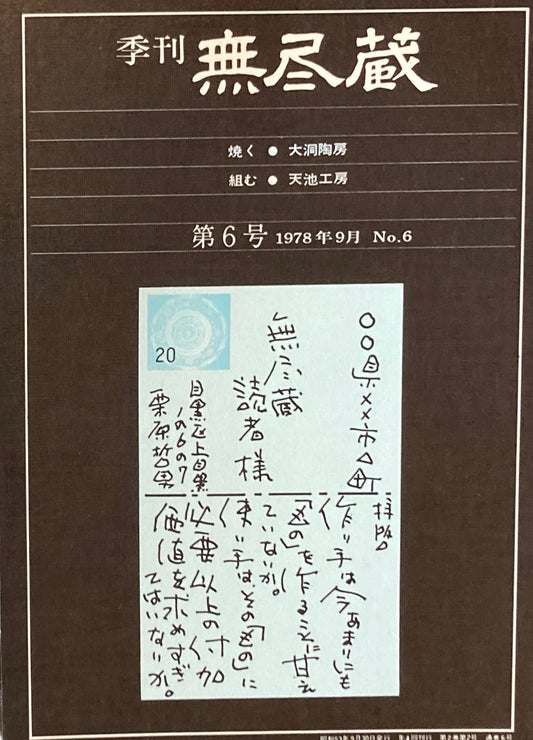 季刊 無尽蔵
焼く ● 大洞陶房
組む ● 天池工房
第6号 1978年9月 No.6
20
〇〇県××市△町
無尽蔵
読者様
目黒区上目黒
1の6の7
栗原哲男
拝啓
作り手は今あまりにも
「もの」を作ることに甘え
ていないか。
使い手は、その「もの」に
必要以上の付加
価値を求めすぎ
てはいないか。
昭和53年9月30日発行 年4回刊行 第2巻第2号 通巻6号